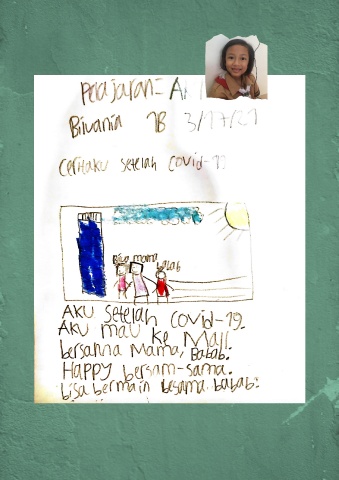 Pelajaran = A
Bivania 1B 3/17/21
Ceritaku setelah covid-19
mama babab
AKU Setelah covid-19.
AKU mau ke Mall.
bersanna Mama, Babab.
Happy bersam-sama.
bisa bermain besama babab.